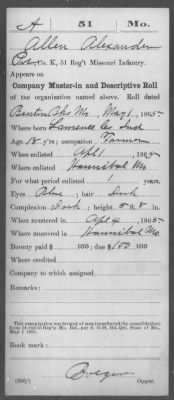 A | 51 | Mo.
Allen Alexander
Co. K, 51 Reg't Missouri Infantry.
Appears on
Company Muster-in and Descriptive Roll
of the organization named above. Roll dated
Benton Bks Mo, May 1, 1865
Where born Lawrence Co Ind
Age 18 y'rs; occupation Farmer
When enlisted Apl 1, 1865
Where enlisted Hannibal Mo
For what period enlisted 1 years.
Eyes Blue; hair Dark
Complexion Dark; height 5 ft. 8 in.
When mustered in Apl 4, 1865
Where mustered in Hannibal Mo
Bounty paid $ 100; due $ 100 100
Where credited
Company to which assigned
Remarks:
This organization was formed of men transferred (by consolidation)
May 1 1865.
Book mark:
Copyist.